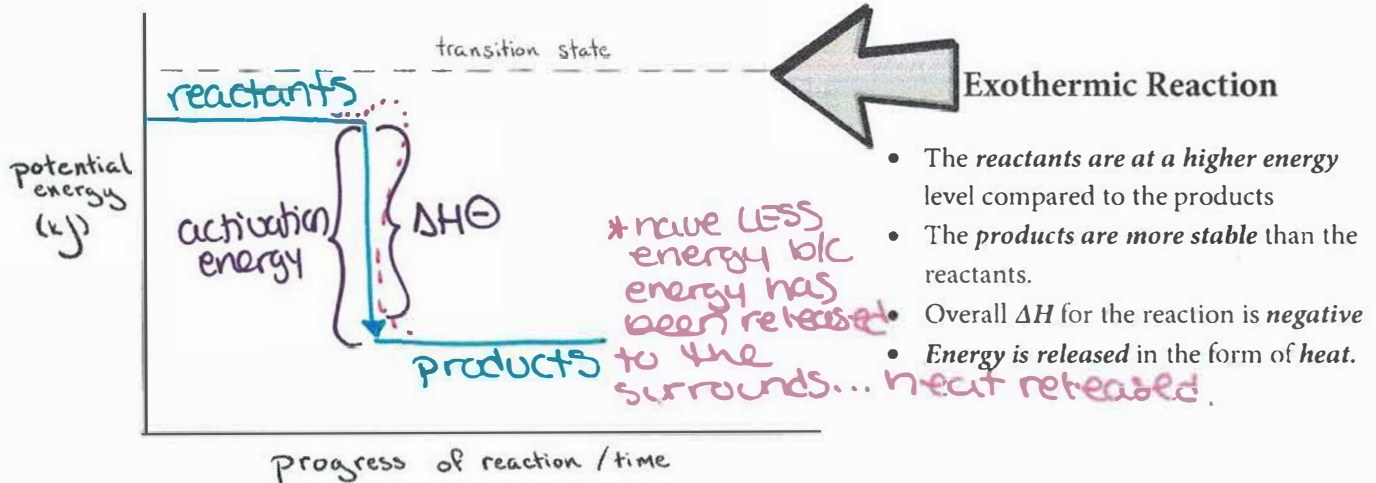 transition state
reactants
potential
energy
(kJ)
activation
energy
ΔHΘ
products
*have LESS
energy b/c
energy has
been released
to the
surrounds... heat released.
progress of reaction / time
Exothermic Reaction
• The reactants are at a higher energy
level compared to the products
• The products are more stable than the
reactants.
• Overall ΔH for the reaction is negative
• Energy is released in the form of heat.